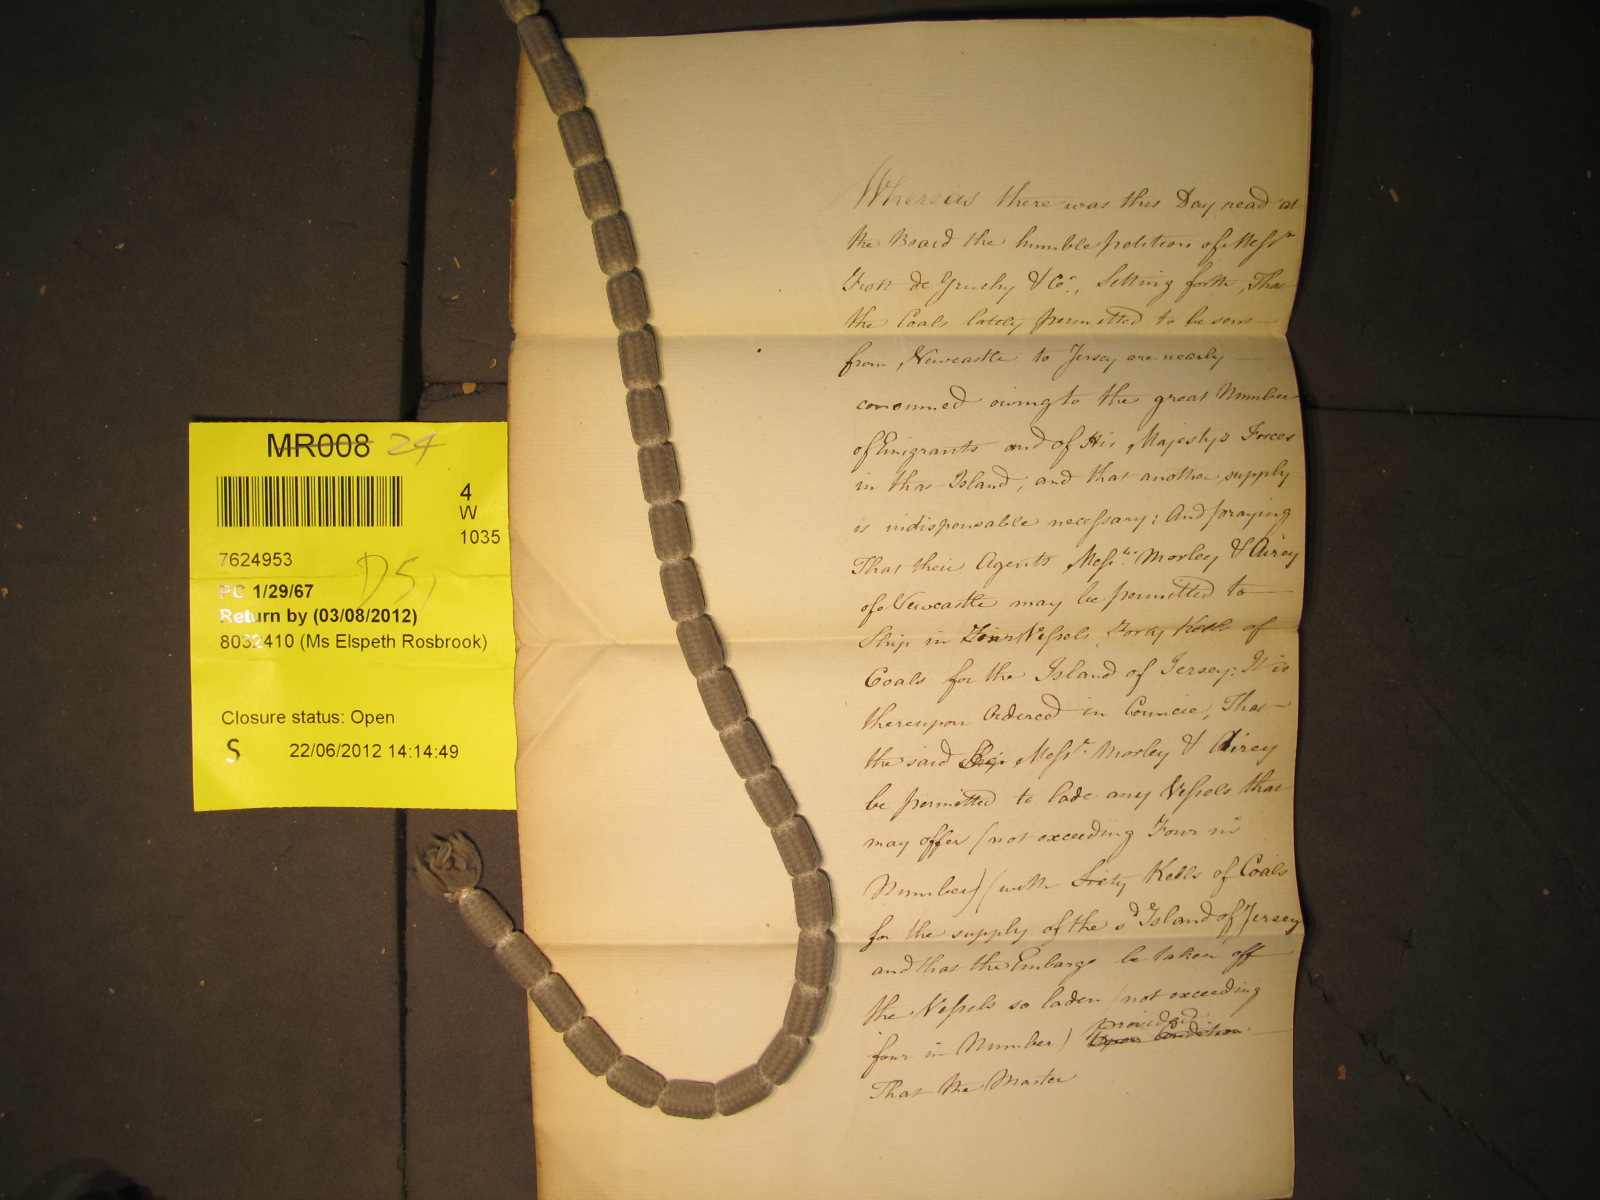 MR008 24
4
W
1035
7624953
DS,
PC 1/29/67
Return by (03/08/2012)
8032410 (Ms Elspeth Rosbrook)
Closure status: Open
S 22/06/2012 14:14:49
Whereas there was this Day read at
the Board the humble petition of Messrs
de Gruchy & Co., Setting forth, That
the Coals lately permitted to be sent
from Newcastle to Jersey are nearly
consumed owing to the great Number
of Emigrants and of His Majesty's Forces
in that Island, and that another supply
is indispensable necessary; And praying
That their Agents Messrs. Morley & Airey
of Newcastle may be permitted to
Ship in Four Vessels Forty Keels of
Coals for the Island of Jersey; It is
thereupon Ordered in Council, That
the said Messrs. Morley & Airey
be permitted to lade any Vessels that
may offer (not exceeding Four in
Number) (with Sixty Keels of Coals
for the supply of the sd Island of Jersey
and that the Embargo be taken off
the Vessels so laden (not exceeding
provided
four in Number) Upon Condition
That the Master